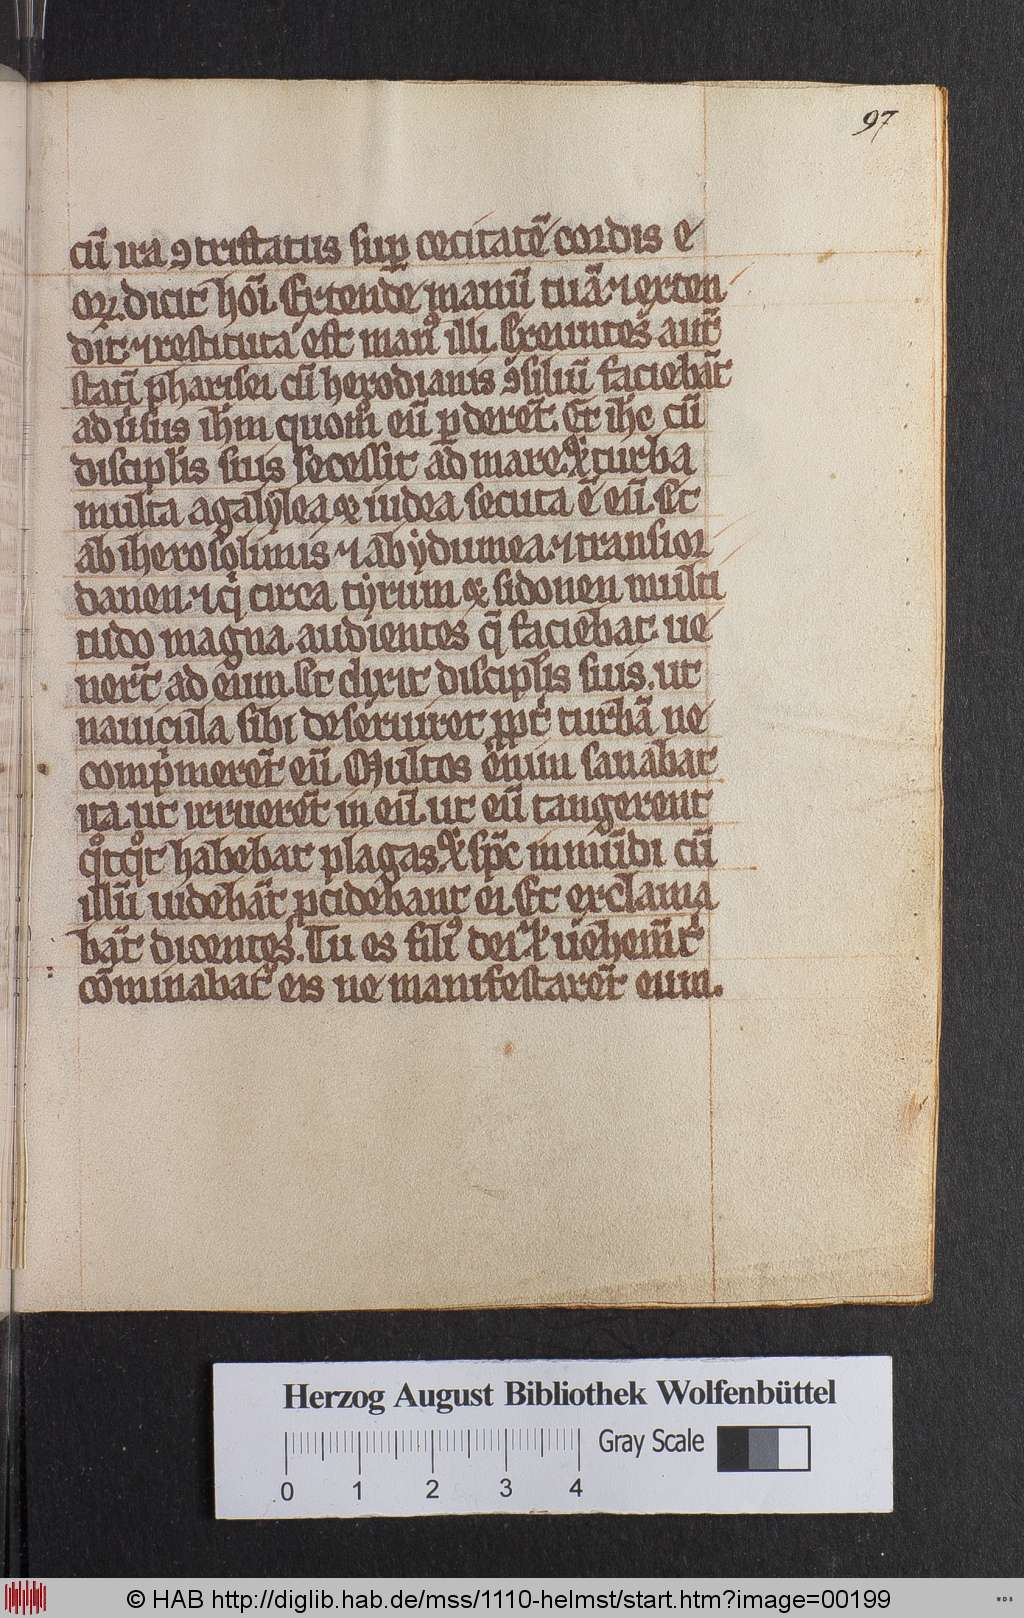 97
cū ira ꝯtristatus suꝑ cecitatē cordis e
oꝝ. dicit hōi. Extende manū tuā. ⁊ exten
dit. ⁊ restituta est manꝰ illi. Exeuntes aut̄
stati pharisei cū herodianis ꝯsiliū faciebāt
adūsus ihm quom̄ eū ꝑderēt. Et ihc cū
disciplis suis secessit ad mare. ⁊ turba
multa a galylea ⁊ iudea secuta ē eū. Et
ab iherosolimis ⁊ ab ydumea ⁊ transior
danen. ⁊ q̇ circa tyrum ⁊ sidonen multi
tudo magna audientes q̄ faciebat. ue
nert̄ ad eum. Et dixit disciplis suis. ut
nauicula sibi deseruiret ꝓpt̄ turbā ne
comp̄merēt eū. Multos enim sanabat
ita ut irruerēt in eū ut eū tangerent
qͦtqͦt habebāt plagas. ⁊ spc̄ inmūdi cū
illū uidebāt ꝓcidebant ei. Et exclama
bāt dicentes. Tu es filiꝰ dei. ⁊ uehemt̄
cōminabat̄ eis ne manifestarēt eum.
Herzog August Bibliothek Wolfenbüttel
Gray Scale
0 1 2 3 4
© HAB http://diglib.hab.de/mss/1110-helmst/start.htm?image=00199